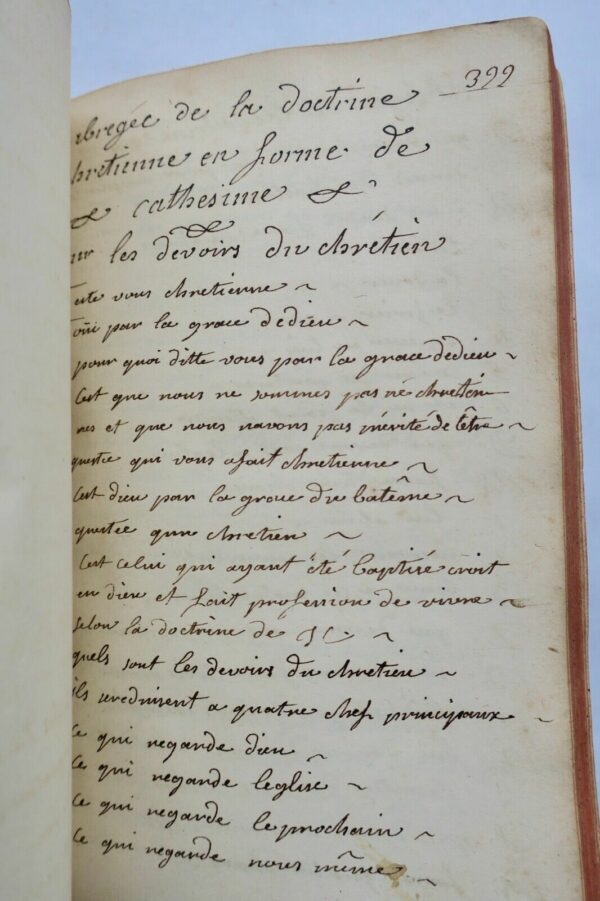 399
abregée de la doctrine
chretienne en forme de
cathesime
sur les devoirs du chrétien
ete vous chretienne ~
oüi par la grace dedieu ~
pour quoi ditte vous par la grace dedieu ~
Cest que nous ne sommes pas né chretién
nes et que nous navons pas mérité de lêtre ~
questce qui vous afait chretienne ~
Cest dieu par la grace du batême ~
questce quun chretien ~
Cest celui qui ayant été baptisé croit
en dieu et fait profession de vivre ~
selon la doctrine de JC ~
quels sont les devoirs du chretien ~
ils sereduisent a quatre chefs principaux ~
Ce qui regarde dieu ~
Ce qui regarde leglise ~
Ce qui regarde le prochain ~
Ce qui regarde nous même ~